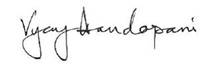 Vijay Aandapani